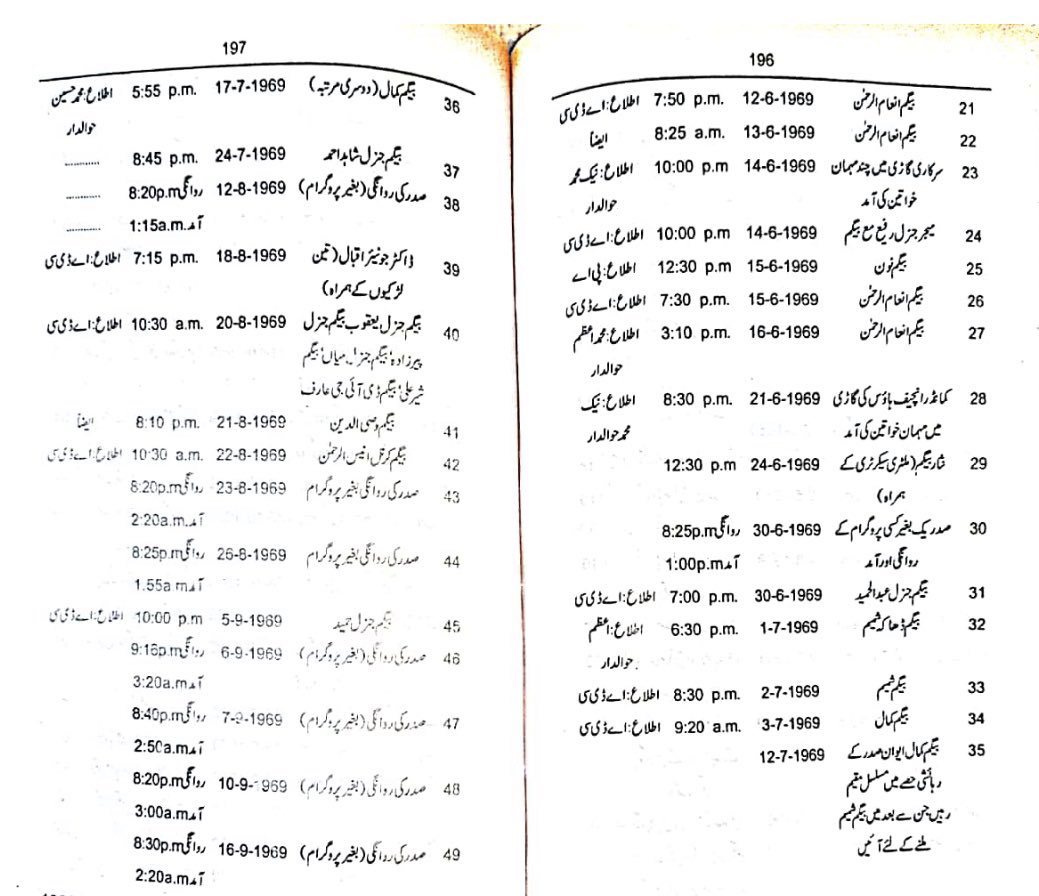 196
21 بیگم انعام الرحمٰن 12-6-1969 7:50 p.m. اطلاع: اے ڈی سی
22 بیگم انعام الرحمٰن 13-6-1969 8:25 a.m. ایضاً
23 سرکاری گاڑی میں چند مہمان 14-6-1969 10:00 p.m اطلاع: نیک محمد
خواتین کی آمد حوالدار
24 میجر جنرل رفیع مع بیگم 14-6-1969 10:00 p.m اطلاع: اے ڈی سی
25 بیگم نون 15-6-1969 12:30 p.m اطلاع: پی اے
26 بیگم انعام الرحمٰن 15-6-1969 7:30 p.m. اطلاع: اے ڈی سی
27 بیگم انعام الرحمٰن 16-6-1969 3:10 p.m. اطلاع: محمد اعظم
حوالدار
28 کمانڈر انچیف ہاؤس کی گاڑی 21-6-1969 8:30 p.m. اطلاع: نیک
میں مہمان خواتین کی آمد محمد حوالدار
29 نثار بیگم (ملٹری سیکرٹری کے 24-6-1969 12:30 p.m
ہمراہ)
30 صدر یک بغیر کسی پروگرام کے 30-6-1969 روانگی 8:25p.m
روانگی اور آمد آمد 1:00p.m
31 بیگم جنرل عبدالحمید 30-6-1969 7:00 p.m. اطلاع: اے ڈی سی
32 بیگم ڈھاکہ شمیم 1-7-1969 6:30 p.m. اطلاع: اعظم
حوالدار
33 بیگم شمیم 2-7-1969 8:30 p.m. اطلاع: اے ڈی سی
34 بیگم کمال 3-7-1969 9:20 a.m. اطلاع: اے ڈی سی
35 بیگم کمال ایوان صدر کے 12-7-1969
رہائشی حصے میں مسلسل مقیم
رہیں جن سے بعد میں بیگم شمیم
ملنے کے لئے آئیں
197
36 بیگم کمال (دوسری مرتبہ) 17-7-1969 5:55 p.m. اطلاع: محمد حسین
حوالدار
37 بیگم جنرل شاہد احمد 24-7-1969 8:45 p.m. ............
38 صدر کی روانگی (بغیر پروگرام) 12-8-1969 روانگی 8:20p.m ............
آمد 1:15a.m. ............
39 ڈاکٹر جونیئر اقبال (تین 18-8-1969 7:15 p.m. اطلاع: اے ڈی سی
لڑکیوں کے ہمراہ)
40 بیگم جنرل یعقوب بیگم جنرل 20-8-1969 10:30 a.m. اطلاع: اے ڈی سی
پیرزادہ' بیگم جنرل میاں' بیگم
شیر علی' بیگم ڈی آئی جی عارف
41 بیگم وصی الدین 21-8-1969 8:10 p.m. ایضاً
42 بیگم کرنل انیس الرحمٰن 22-8-1969 10:30 a.m. اطلاع: اے ڈی سی
43 صدر کی روانگی بغیر پروگرام 23-8-1969 روانگی 8:20p.m
آمد 2:20a.m.
44 صدر کی روانگی بغیر پروگرام 26-8-1969 روانگی 8:25p.m
آمد 1.55a m.
45 بیگم جنرل حمید 5-9-1969 10:00 p.m اطلاع: اے ڈی سی
46 صدر کی روانگی (بغیر پروگرام) 6-9-1969 روانگی 9:16p.m
آمد 3:20a.m
47 صدر کی روانگی (بغیر پروگرام) 7-9-1969 روانگی 8:40p.m
آمد 2:50a.m
48 صدر کی روانگی (بغیر پروگرام) 10-9-1969 روانگی 8:20p.m
آمد 3:00a.m
49 صدر کی روانگی (بغیر پروگرام) 16-9-1969 روانگی 8:30p.m
آمد 2:20a.m